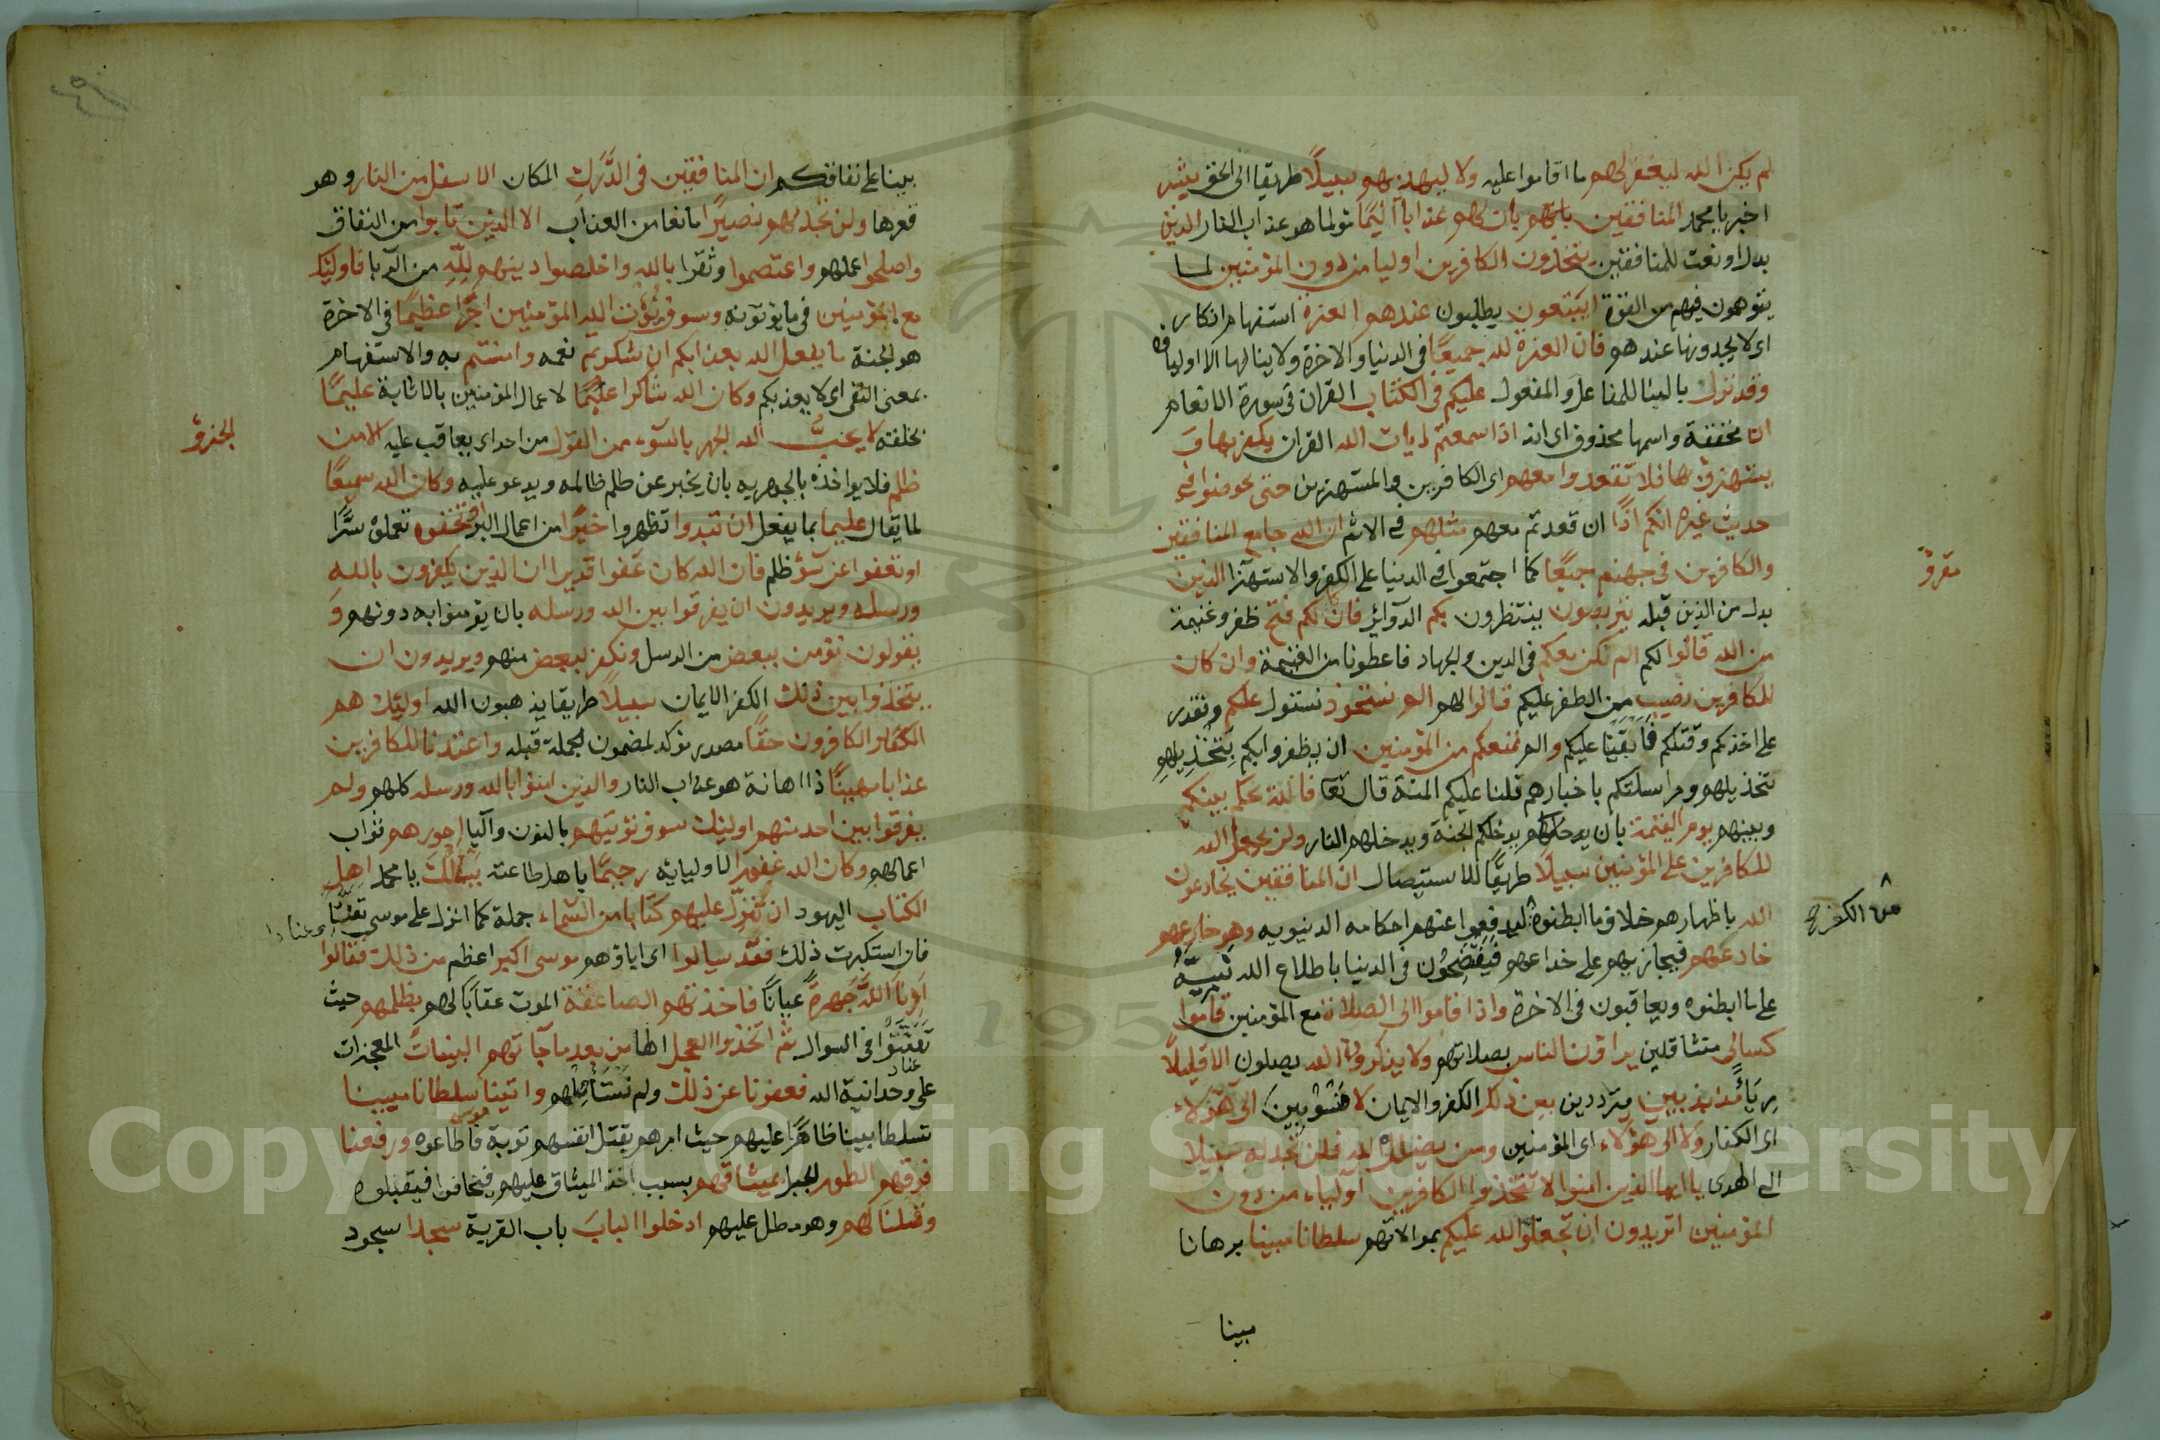 لم يكن الله ليغفر لهم ما اقاموا عليه ولا ليهديهم سبيلًا طريقا الى الحق بشر
اخبر يا محمد المنافقين بانهم بان لهم عذابا اليما مولما هو عذاب النار الذين
بدل او نعت للمنافقين يتخذون الكافرين اوليا من دون المؤمنين لما
يتوهمون فيهم من القوة ايبتغون يطلبون عندهم العزة استفهام انكار
اى لا يجدونها عندهم فان العزة لله جميعًا فى الدنيا والاخرة ولا ينالها الا اولياؤه
وقد نزل بالبنا للفاعل والمفعول عليكم فى الكتاب القران فى سورة الانعام
ان مخففة واسمها محذوف اى انه اذا سمعتم ايات الله القران يكفر بها و
يستهزؤ بها فلا تقعدوا معهم اى الكافرين والمستهزين حتى يخوضوا فى
حديث غيره انكم اذًا ان قعدتم معهم مثلهم فى الاثم ان الله جامع المنافقين
والكافرين فى جهنم جميعًا كما اجتمعوا فى الدنيا على الكفر والاستهزا الذين
بدل من الذين قبله يتربصون ينتظرون بكم الدوائر فان كان لكم فتح ظفر وغنيمة
من الله قالوا لكم الم نكن معكم فى الدين والجهاد فاعطونا من الغنيمة وان كان
للكافرين نصيب من الظفر عليكم قالوا لهم الم نستحوذ نستول عليكم ونقدر
على اخذكم وقتلكم فابقينا عليكم والم نمنعكم من المؤمنين ان يظفروا بكم بتخذيلهم
تخذيلهم ومراسلتكم باخبارهم فلنا عليكم المنة قال تعا فالله يحكم بينكم
وبينهم يوم القيمة بان يدخلكم الجنة ويدخلهم النار ولن يجعل الله
للكافرين على المؤمنين سبيلًا طريقًا للاستيصال ان المنافقين يخادعون
الله باظهارهم خلاف ما ابطنوه ليدفعوا عنهم احكامه الدنيويه وهو خادعهم
من الكفر صح
خادعهم فيجازيهم على خداعهم فيفتضحون فى الدنيا باطلاع الله نبيه
على ما ابطنوه ويعاقبون فى الاخرة واذا قاموا الى الصلاة مع المؤمنين قاموا
كسالى متثاقلين يراؤن الناس بصلاتهم ولا يذكرون الله يصلون الا قليلًا
رياء مذبذبين مترددين بين ذلك الكفر والايمان لا منسوبين الى هؤلاء
اى الكفار ولا الى هؤلاء اى المؤمنين ومن يضلل الله فلن تجد له سبيلا
الى الهدى يا ايها الذين امنوا لا تتخذوا الكافرين اولياء من دون
المؤمنين اتريدون ان تجعلوا لله عليكم بموالاتهم سلطانا مبينا برهانا
بينا
بينا على نفاقكم ان المنافقين فى الدَّرَكِ المكان الاسفل من النار وهو
قعرها ولن تجد لهم نصيرًا مانعا من العذاب الا الذين تابوا من النفاق
واصلحوا عملهم واعتصموا وثقوا بالله واخلصوا دينهم لِلّهِ من الريا فاوليك
مع المؤمنين فى ما يؤتونه وسوف يؤت الله المؤمنين اجرًا عظيمًا فى الاخرة
هو الجنة ما يفعل الله بعذابكم ان شكرتم نعمه وامنتم به والاستفهام
بمعنى النفى اى لا يعذبكم وكان الله شاكرا عليمًا لاعمال المؤمنين بالاثابة عليمًا
بخلقه لا يحبُّ الله الجهر بالسوء من القول من احد اى يعاقب عليه الا من
ظلم فلا يواخذه بالجهر به بان يخبر عن ظلم ظالمه ويدعو عليه وكان الله سميعًا
لما يقال عليما بما يفعل ان تبدوا تظهروا خيرًا من اعمال البر او تخفوه تعملوه سرًّا
او تعفوا عن سوء ظلم فان الله كان عفوا قديرا ان الذين يكفرون بالله
ورسله ويريدون ان يفرقوا بين الله ورسله بان يؤمنوا به دونهم وَ
يقولون نؤمن ببعض من الرسل ونكفر ببعض منهم ويريدون ان
يتخذوا بين ذلك الكفر الايمان سبيلًا طريقا يذهبون الله اوليك هم
الكافرون حقًا مصدر مؤكد لمضمون الجملة قبله واعتدنا للكافرين
عذابا مهينًا ذا اهانة هو عذاب النار والذين امنوا بالله ورسله كلهم ولم
يفرقوا بين احد منهم اوليك سوف نؤتيهم بالنون واليا اجورهم ثواب
اعمالهم وكان الله غفورا لاوليايه رحيمًا باهل طاعته يَسْاَلُكَ يا محمد اهل
الكتاب اليهود ان تنزّل عليهم كتابا من السّماء جملة كما انزل على موسى تعنتا
فان استكبرت ذلك فقد سالوا اى اباؤهم موسى اكبر اعظم من ذلك فقالوا
اَرِنَا اللّهَ جَهرةً عيانًا فاخذتهم الصاعقة الموت عقابًا لهم بظلمهم حيث
تعنتوا فى السوال ثم اتخذوا العجل الها من بعد ما جآتهم البينات المعجزات
عناد
على وحدانية الله فعفونا عن ذلك ولم نستاصلهم واتينا موسى سلطانا مبينا
تسلطا بينا ظاهرًا عليهم حيث امرهم بقتل انفسهم توبة فاطاعوه ورفعنا
فوقهم الطور الجبل بميثاقهم بسبب اخذ الميثاق عليهم فيخافوا فيقبلوه
وقلنا لهم وهو مطل عليهم ادخلوا البابَ باب القرية سجدا سجود
Copyright © King Saud University
195